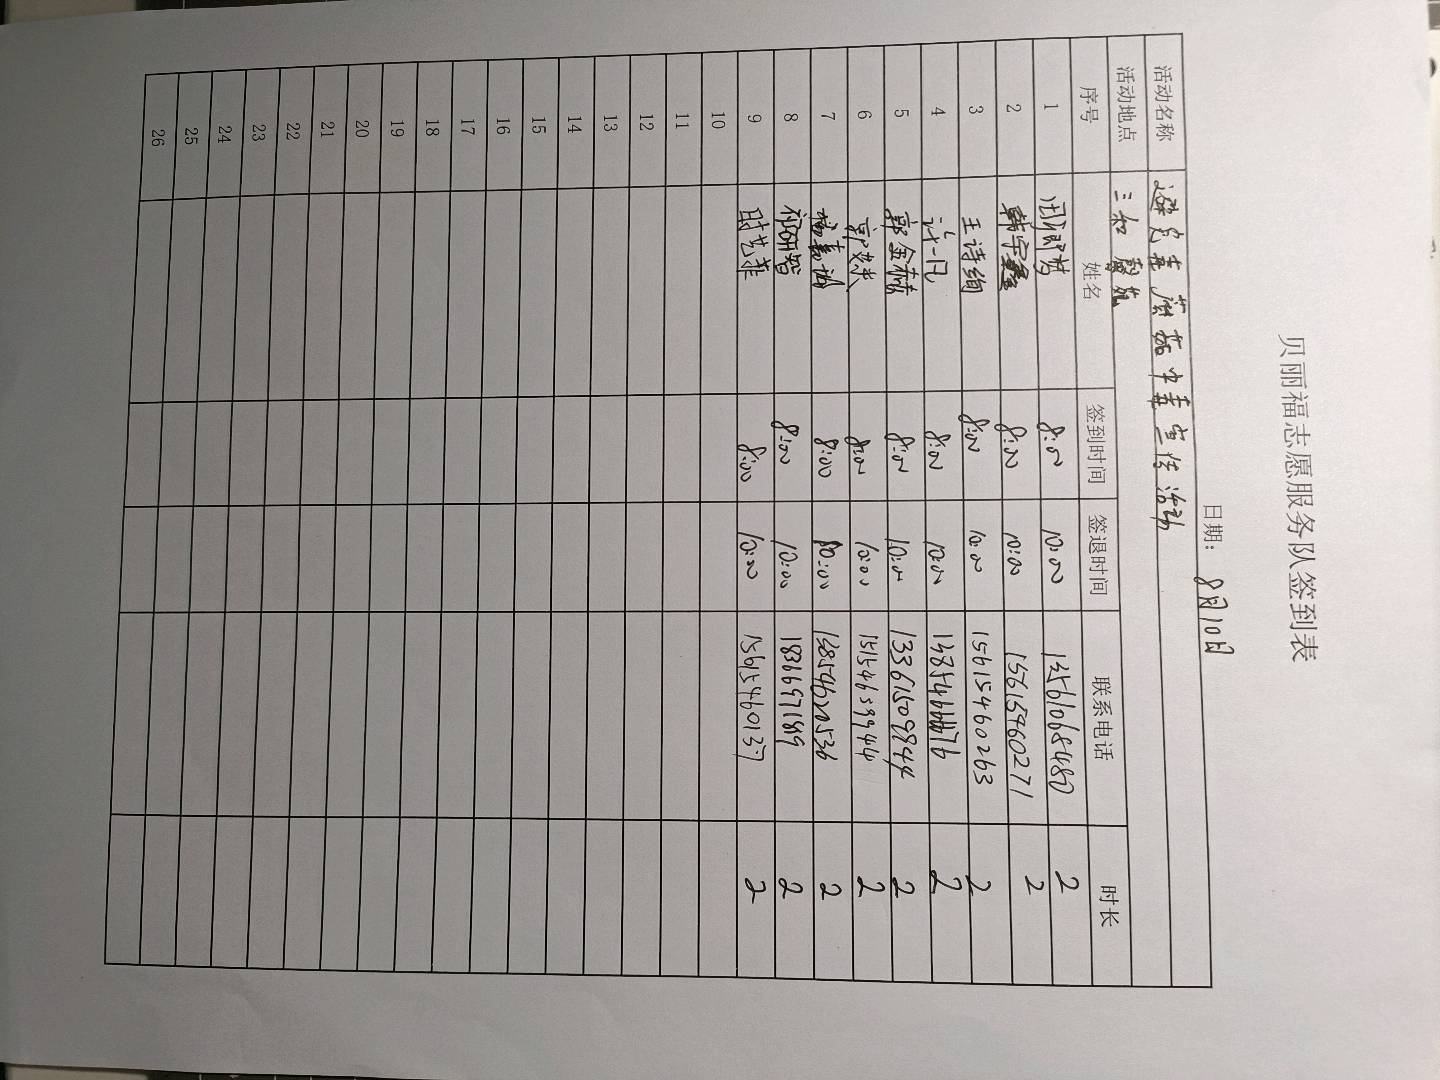 贝丽福志愿服务队签到表
日期: 8月10日
活动名称 避免在广告中毒宣传活动
活动地点 三和馨苑
序号 姓名 签到时间 签退时间 联系电话 时长
1 8:00 10:00 13561068480 2
2 韩宇鑫 8:00 10:00 15615460271 2
3 王诗绚 8:00 10:00 15615460263 2
4 许一凡 8:00 10:00 2
5 郭金赫 8:00 10:00 13361509944 2
6 8:00 10:00 15154659944 2
7 8:00 10:00 2
8 祁研智 8:00 10:00 2
9 时艺菲 8:00 10:00 15615460137 2
10
11
12
13
14
15
16
17
18
19
20
21
22
23
24
25
26